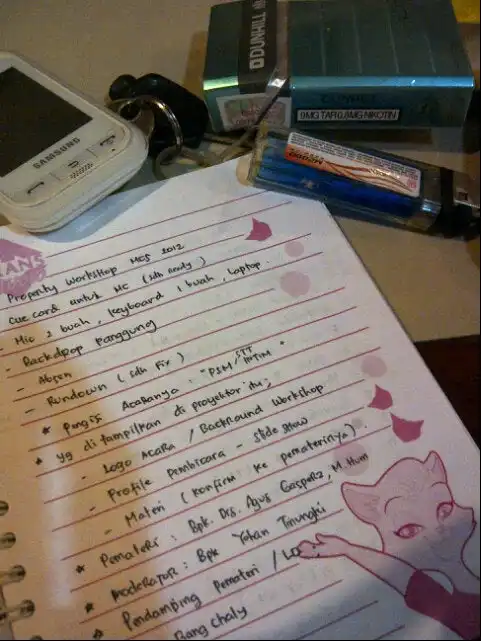 DUNHILL
9MG TAR 0,8MG NIKOTIN
SAMSUNG
Property Workshop MCS 2012
Cue card untuk MC (sdh ready)
Mic 2 buah, keyboard 1 buah, Laptop.
- Backdpop panggung
- Absen
- Rundown (sdh fix)
* Pengisi Acaranya : "PSM STT INTIM"
* yg ditampilkan di proyektor itu,
- Logo Acara / Backround Workshop
- Profile Pembicara - slide show
- Materi (konfirm ke pematerinya).
* Pemateri : Bpk. Drs. Agus Gaspersz, M.Hum
* Moderator : Bpk Yohan Tinungki
* Pendamping Pemateri / LO
Bang chaly